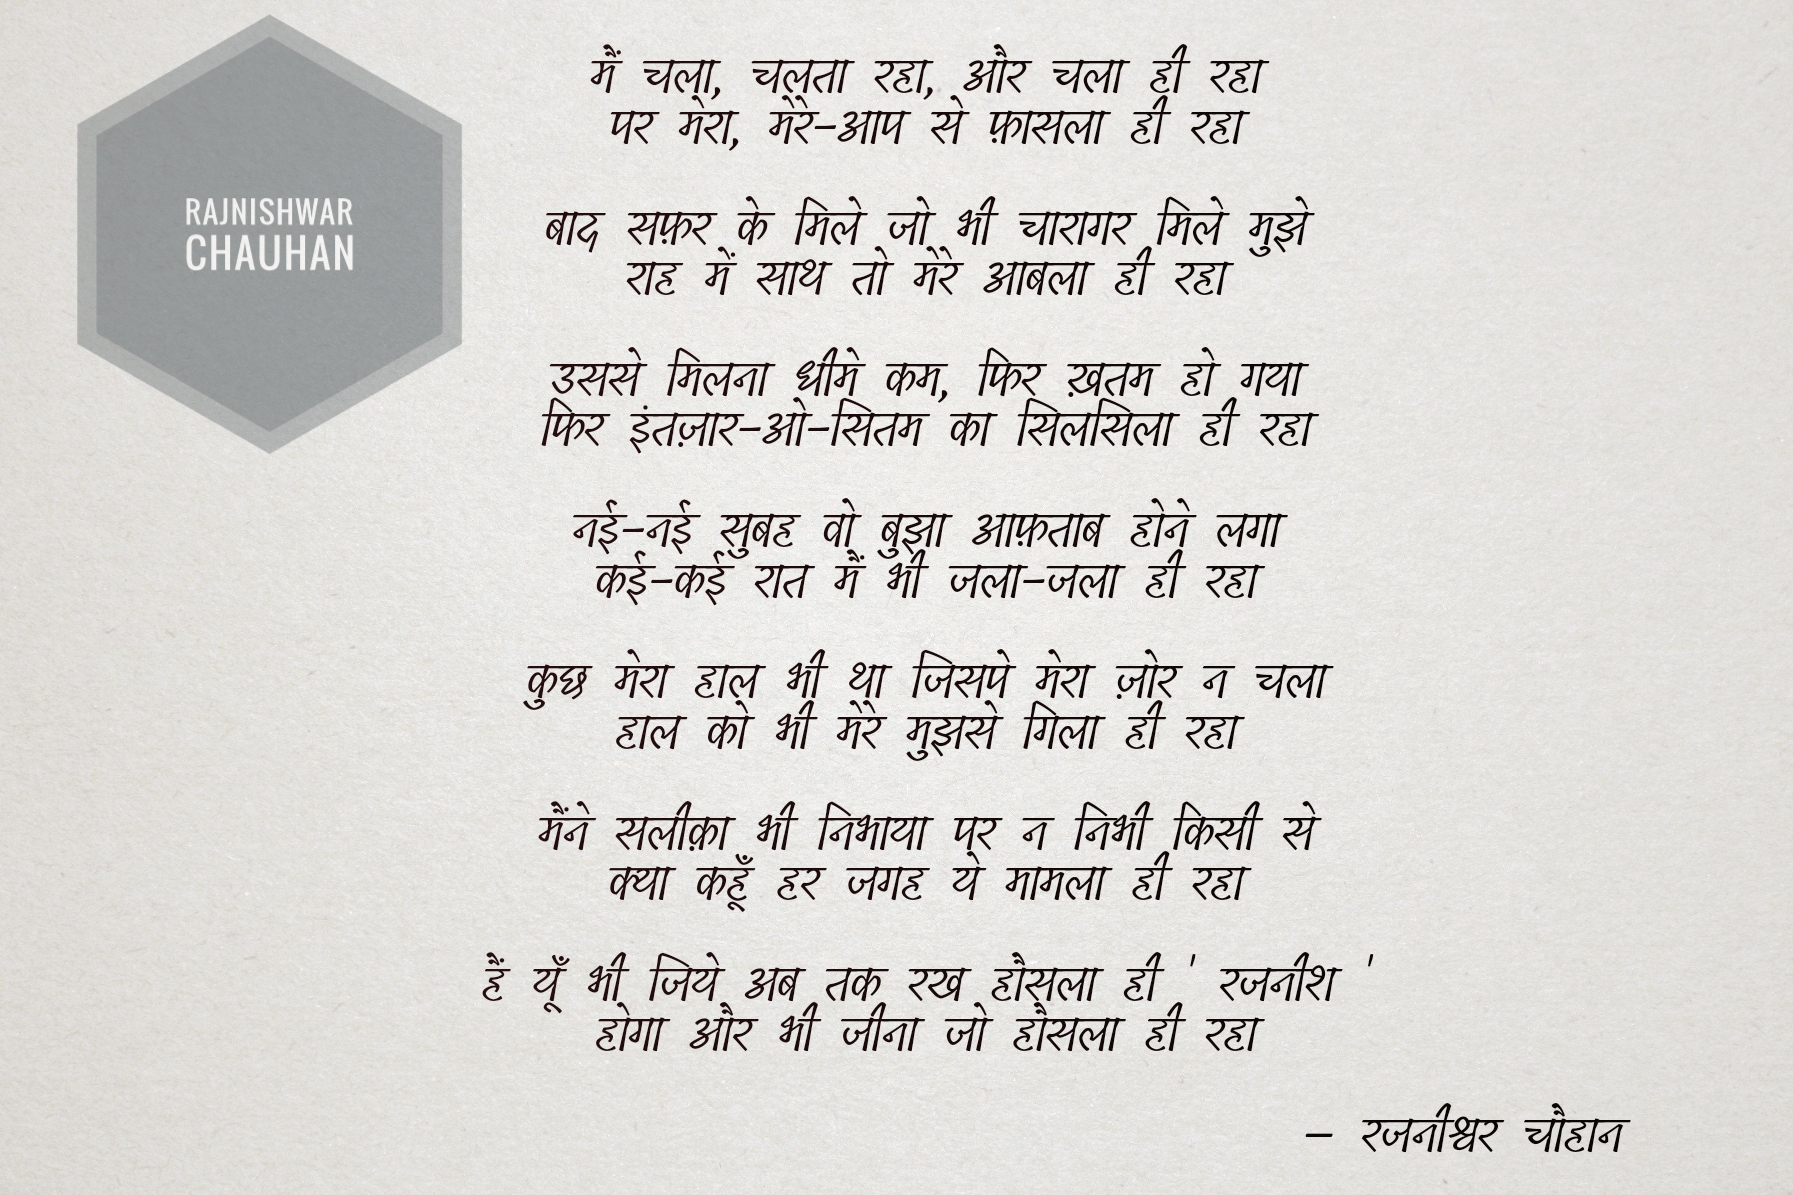 RAJNISHWAR
CHAUHAN
मैं चला, चलता रहा, और चला ही रहा
पर मेरा, मेरे-आप से फ़ासला ही रहा
बाद सफ़र के मिले जो भी चारागर मिले मुझे
राह में साथ तो मेरे आबला ही रहा
उससे मिलना धीमे कम, फिर ख़तम हो गया
फिर इंतज़ार-ओ-सितम का सिलसिला ही रहा
नई-नई सुबह वो बुझा आफ़ताब होने लगा
कई-कई रात मैं भी जला-जला ही रहा
कुछ मेरा हाल भी था जिसपे मेरा ज़ोर न चला
हाल को भी मेरे मुझसे गिला ही रहा
मैंने सलीक़ा भी निभाया पर न निभी किसी से
क्या कहूँ हर जगह ये मामला ही रहा
हैं यूँ भी जिये अब तक रख हौसला ही ' रजनीश '
होगा और भी जीना जो हौसला ही रहा
– रजनीश्वर चौहान